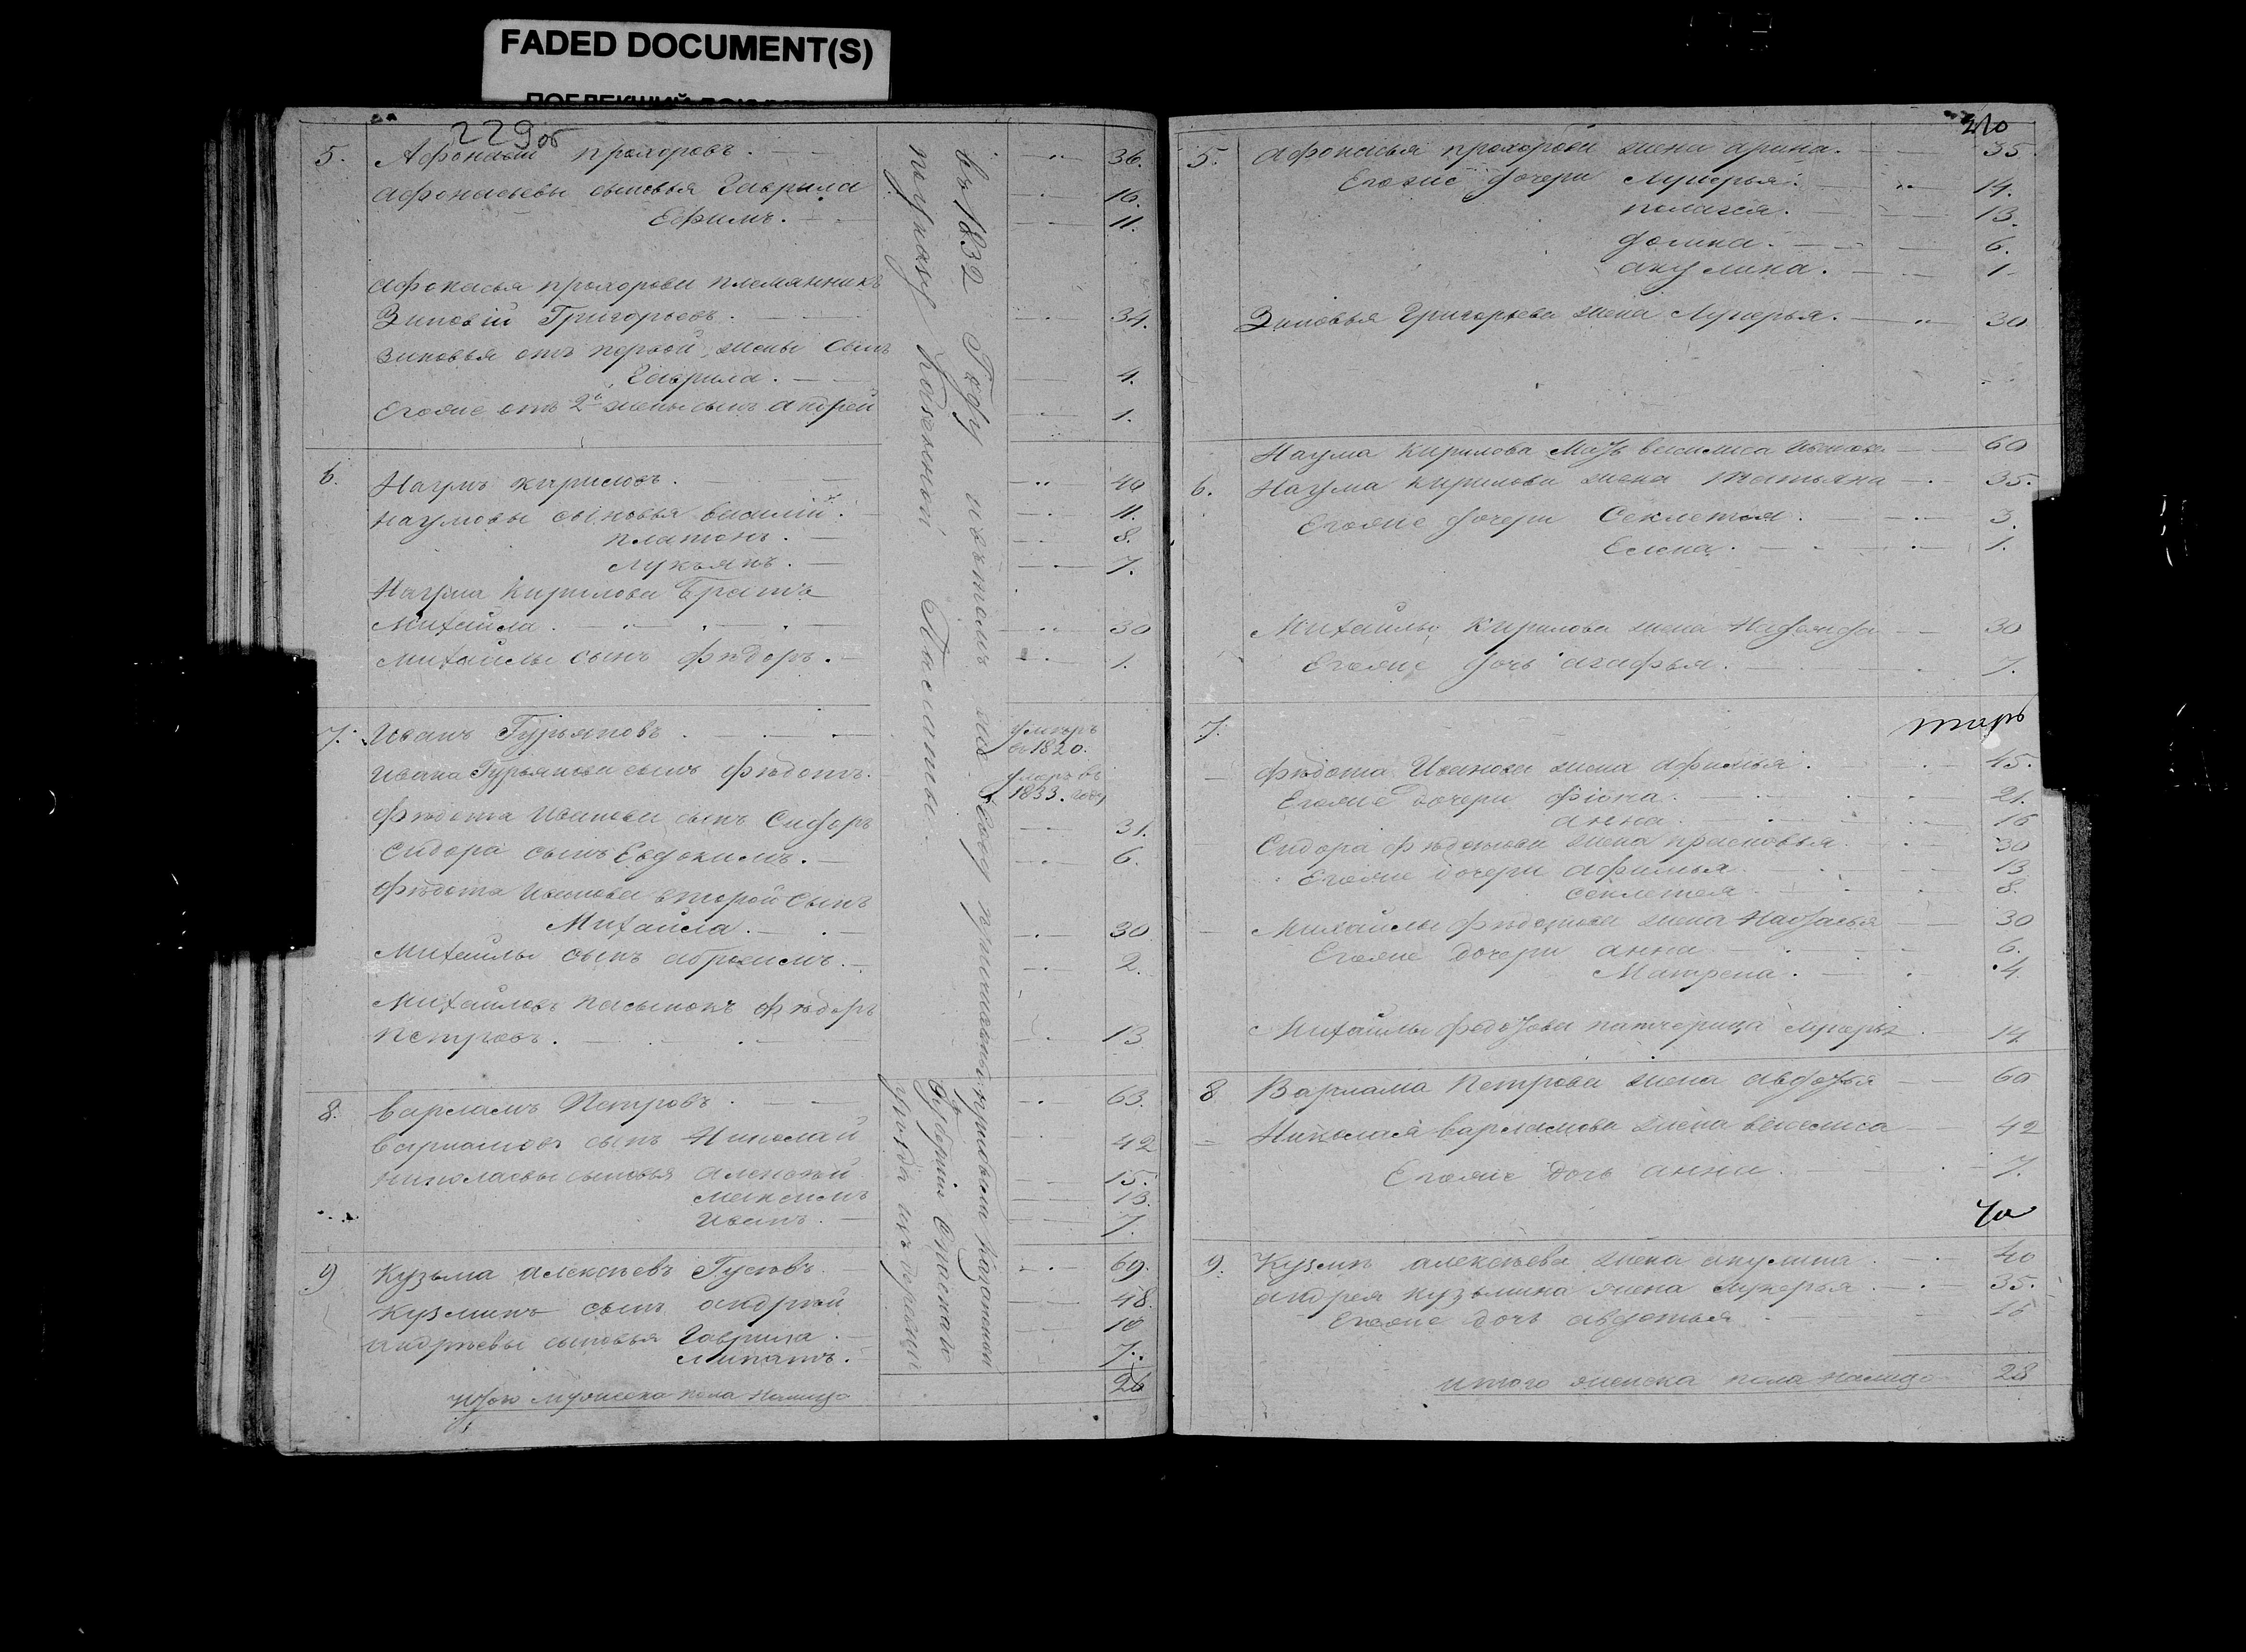 FADED DOCUMENT(S)
229об
5. Афонасій Прохоровъ. 36.
Афонасьевы сыновья Гаврила 16.
Ефимъ. 11.
Афонасья Прохорова племянникъ
Зиновій Григорьевъ. 34.
Зиновья отъ первой жены сынъ
Гаврила. 4.
Егоже отъ 2й жены сынъ андрей 1.
6. Наумъ Кириловъ. 40
Наумовы сыновья василій. 11.
платонъ. 8.
Лукьянъ. 7.
Наума Кирилова Братъ
Михайла. 30
Михайлы сынъ Фѣдоръ. 1.
7. Иванъ Гурьяновъ. умеръ в 1820.
Ивана Гурьянова сынъ Фѣдотъ. умеръ въ 1833. году
Фѣдота Иванова сынъ Сидоръ 31.
Сидора сынъ Евдокимъ. 6.
Фѣдота Иванова второй сынъ
Михайла. 30
Михайлы сынъ абрамъ. 2.
Михайловъ пасынокъ Фѣдоръ
Петровъ. 13
8. Варламъ Петровъ. 63.
Варламовъ сынъ Николай 42
Николаевы сыновья алексѣй 15.
максимъ 13.
Иванъ. 7.
9 Кузьма алексѣевъ Гусевъ. 69.
Кузминъ сынъ андрѣй 48.
андрѣевы сыновья Гаврила. 10
Липатъ. 7.
Итого мужеска пола налицо 26
въ 1832 Году
по указу Казенной Палаты
прибыли Казанской
Губерніи Спаскаго
уѣзда изъ деревни
210
5. Афонасья Прохорова жена арина. 35
Егоже дочери Лукерья. 14.
пелагея. 13.
домна. 6.
акулина. 1
Зиновья Григорьева жена Лукерья. 30
Наума Кирилова Мать василиса Иванова 60
6. Наума Кирилова жена Татьяна 35.
Егоже дочери Секлетея. 3.
Елена. 1.
Михайлы Кирилова жена 30
Егоже дочь агафья. 7.
7.
Фѣдота Иванова жена афимья. 45.
Егоже дочери Фіона. 21.
анна. 16
Сидора Фѣдотова жена прасковья. 30
Егоже дочери афимья 13
секлетея. 8.
Михайлы Фѣдотова жена Наталья 30
Егоже дочери анна 6.
Матрена. 4.
Михайлы Федотова патчерица 14
8 Варлама Петрова жена авдотья 60
Николая варламова жена василиса 42
Егоже дочь анна. 7.
9. Кузмы алексѣева жена акулина 40
андрея кузьмина жена лукерья. 35.
Егоже дочь авдотья 15
итого женска пола налицо 28